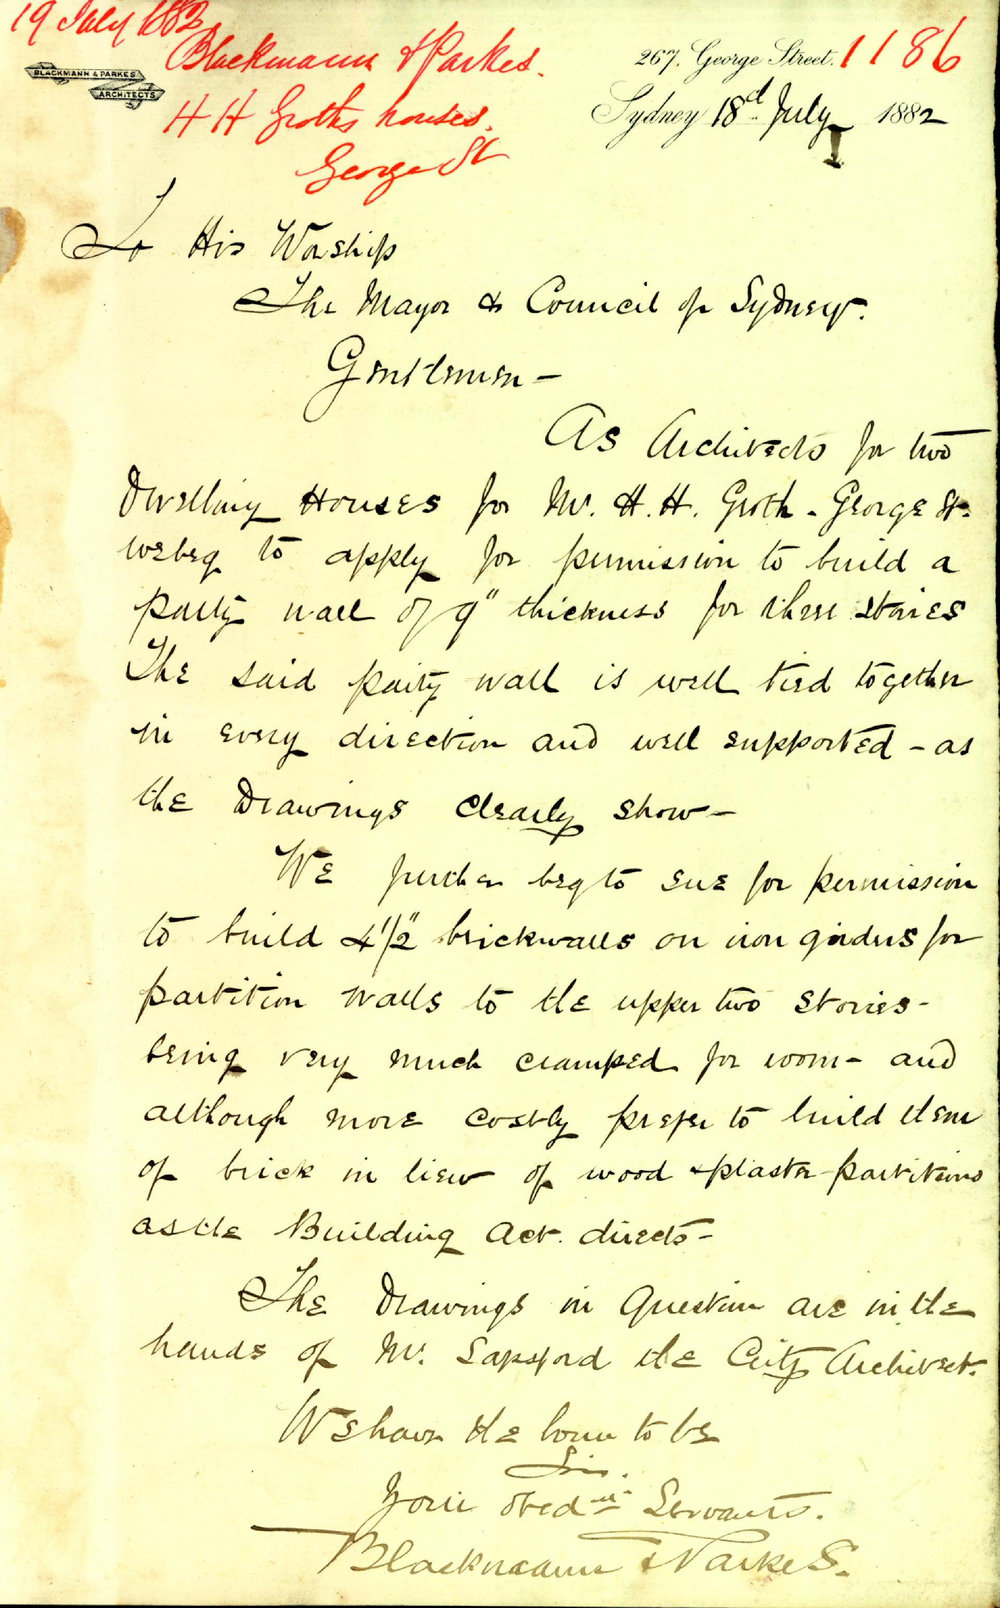 19 July 1882
Blackmann & Parkes.
H H Groths houses.
George St
1186
BLACKMANN & PARKES
ARCHITECTS
267, George Street.
Sydney 18d July 1882
To His Worship
The Mayor & Council of Sydney.
Gentlemen -
As Architects for two
Dwelling Houses for Mr. H. H. Groth - George St.
we beg to apply for permission to build a
party wall of 9" thickness for three stories
The said party wall is well tied together
in every direction and well supported - as
the Drawings clearly show -
We further beg to sue for permission
to build 4 1/2" brickwalls on iron girders for
partition walls to the upper two stories -
being very much cramped for room - and
although more costly prefer to build them
of brick in liew of wood & plaster partitions
as the Building Act. directs -
The Drawings in Question are in the
hands of Mr. Sapsford the City Architect.
We have the honr to be
Sir.
Your obednt Servants.
Blackmann & Parkes.